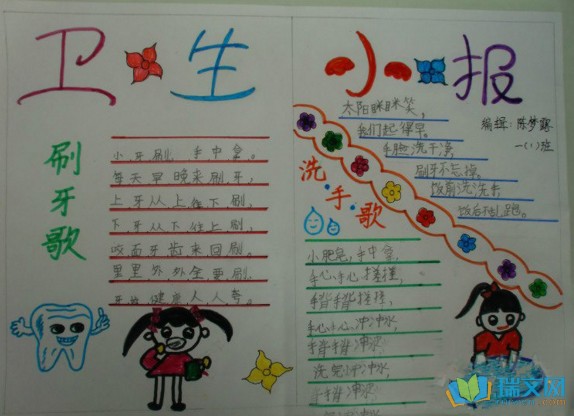 卫生小报
编辑：陈梦露
一（1）班
刷牙歌
小牙刷，手中拿。
每天早晚来刷牙，
上牙从上往下刷，
下牙从下往上刷，
咬面牙齿来回刷。
里里外外全要刷，
牙齿健康人人夸。
太阳眯眯笑，
我们起得早。
手脸洗干净，
刷牙不忘掉。
饭前洗洗手，
饭后
跑。
洗手歌
小肥皂，手中拿，
手心手心搓搓搓，
手背手背搓搓，
手心手心冲冲水，
手背手背冲冲水，
洗完冲冲水
瑞文网